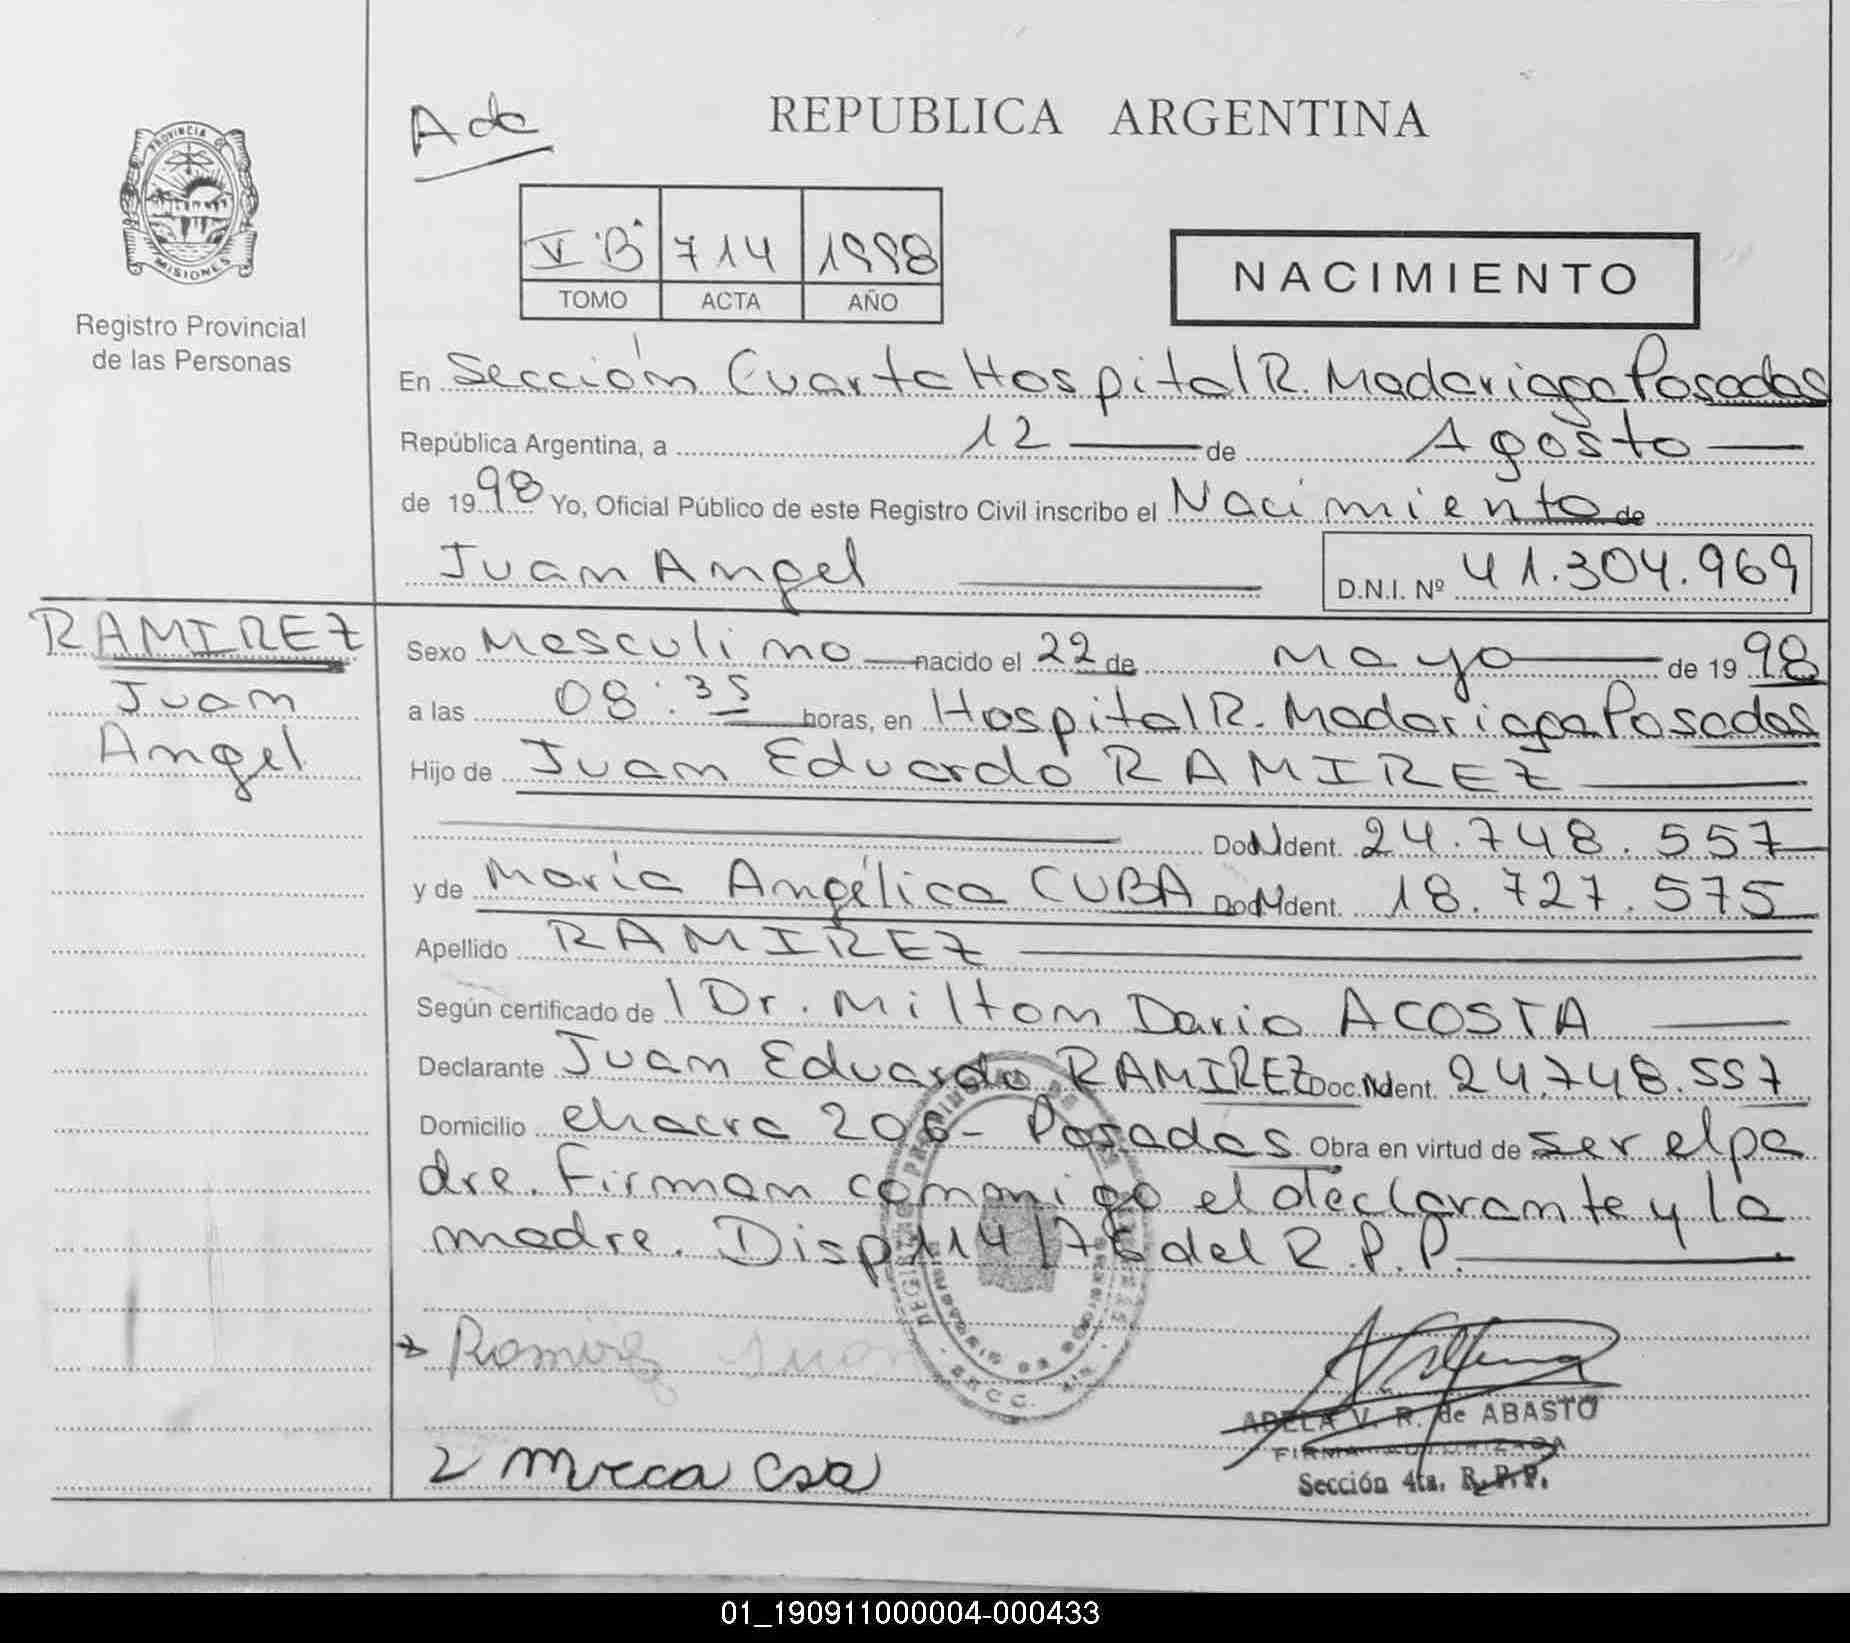 PROVINCIA DE
MISIONES
Registro Provincial
de las Personas
Ada
REPUBLICA ARGENTINA
V "B" 714 1998
TOMO ACTA AÑO
NACIMIENTO
En Sección Cuarta Hospital R. Madariaga Posadas
República Argentina, a 12 de Agosto
de 1998 Yo, Oficial Público de este Registro Civil inscribo el Nacimiento de
Juan Angel D.N.I. Nº 41.304.969
RAMIREZ
Juan
Angel
Sexo Masculino nacido el 22 de mayo de 1998
a las 08:35 horas, en Hospital R. Madariaga Posadas
Hijo de Juan Eduardo RAMIREZ
Doc. Ident. 24.748.557
y de María Angélica CUBA Doc. Ident. 18.727.575
Apellido RAMIREZ
Según certificado de l Dr. Milton Dario ACOSTA
Declarante Juan Eduardo RAMIREZ Doc. Ident. 24.748.557
Domicilio chacra 206- Posadas Obra en virtud de ser el pa
dre. Firman conmigo el declarante y la
madre. Disp 114/76 del R.P.P.
Ramirez Juan
ADELA V. R. de ABASTO
FIRMA AUTORIZADA
Sección 4ta. R.P.P.
01_190911000004-000433